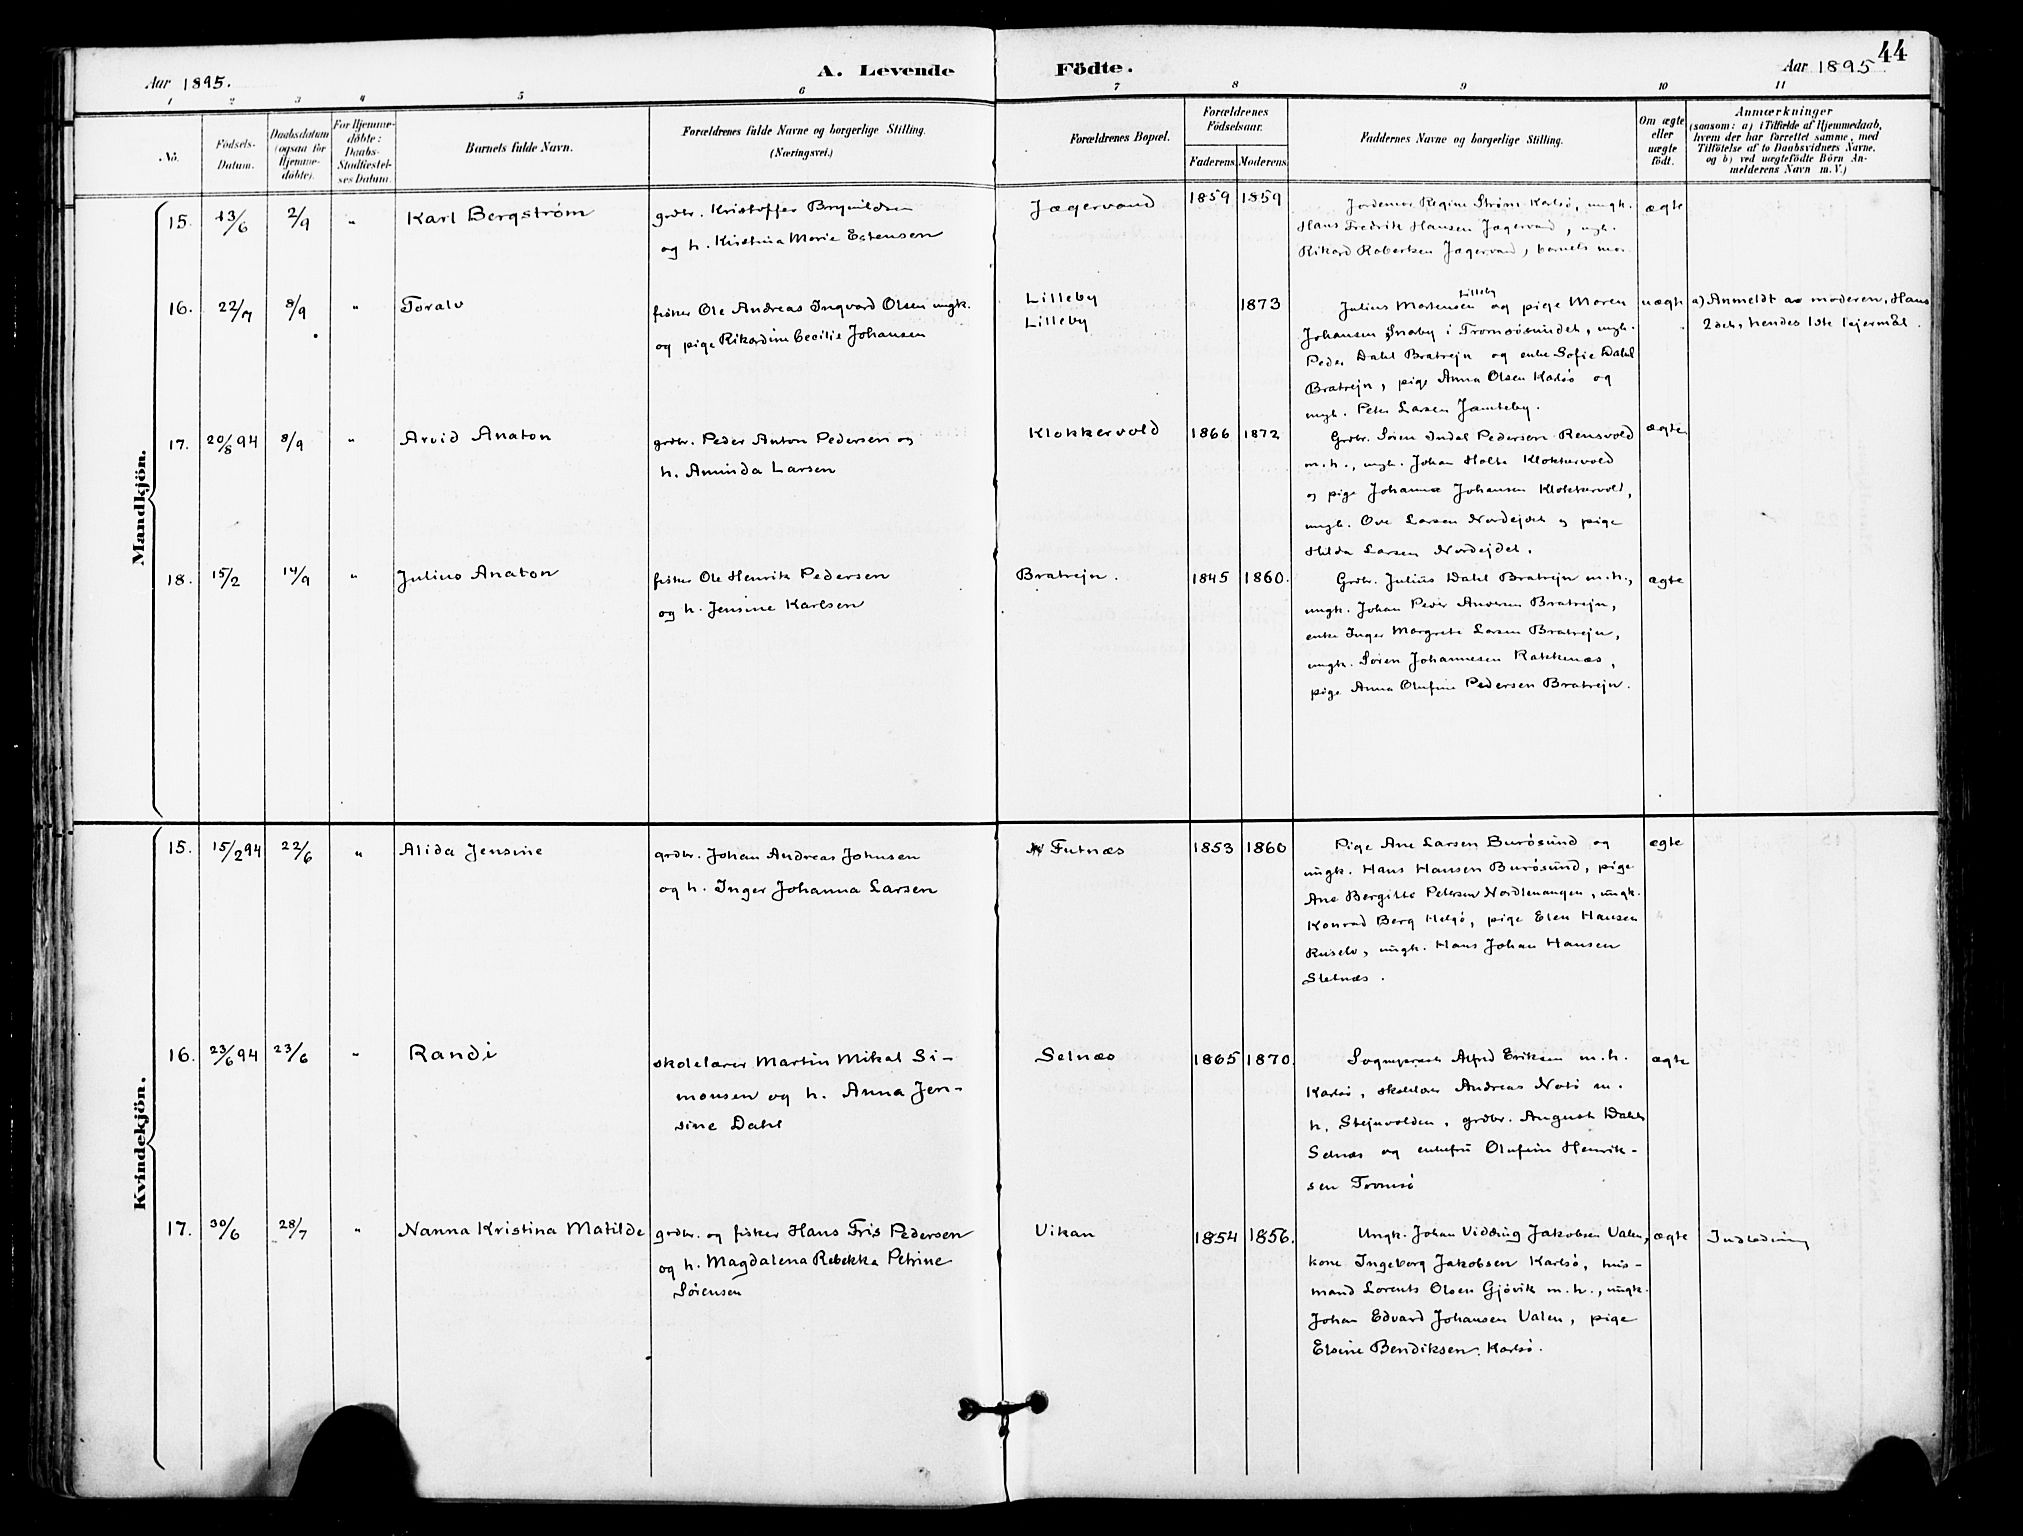 44
Aar 1895. A. Levende Födte. Aar 1895
1 2 3 4 5 6 7 8 9 10 11
No. Födsels-Datum. Daabsdatum (ogsaa for Hjemmedöbte). For Hjemmedöbte: Daabs-Stadfæstelses Datum. Barnets fulde Navn. Forældrenes fulde Navne og borgerlige Stilling. (Næringsvei.) Forældrenes Bopæl. Forældrenes Födselsaar. Faderens. Moderens. Faddernes Navne og borgerlige Stilling. Om ægte eller uægte födt. Anmærkninger (saasom: a) i Tilfælde af Hjemmedaab, hvem der har forrettet samme, med Tilföielse af to Daabsvidners Navne. og b) ved uægtefödte Börn Anmelderens Navn m. V.)
Mandkjön.
15. 13/6 2/9 " Karl Bergström grdbr. Kristoffer Brynildsen Jægervand 1859 1859 Jordemor Regine Strøm Karlsö, ungk. ægte
og h. Kristina Marie Estensen Hans Fredrik Hansen Jægervand, ungk.
Rikard Robertsen Jægervand, barnets mor.
16. 22/7 8/9 " Toralv fisker Ole Andreas Ingvard Olsen ungk. Lilleby 1873 Julius Mortensen Lilleby og pige Maren uægte a) Anmeldt av moderen, Hans
og pige Rikardine Cecilie Johansen Lilleby Johansen Snaby i Tromsösundet, ungk. 2det, hendes 1ste lejermål.
Peder Dahl Bratrejn og enke Sofie Dahl
Bratrejn, pige Anna Olsen Karlsö og
ungk. Peter Larsen Jamteby.
17. 20/8 94 8/9 " Arvid Anaton grdbr. Peder Anton Pedersen og Klokkervold 1866 1872 Grdbr. Sören Indal Pedersen Rensvold ægte
h. Aminda Larsen m.h., ungk. Johan Holte Klokkervold
og pige Johanna Johansen Klokkervold,
ungk. Ove Larsen Nordejdet og pige
Hilda Larsen Nordejdet.
18. 15/2 14/9 " Julius Anaton fisker Ole Henrik Pedersen Bratrejn. 1845 1860. Grdbr. Julius Dahl Bratrejn m.h., ægte
og h. Jensine Karlsen ungk. Johan Peder Andersen Bratrejn,
enke Inger Margrete Larsen Bratrejn,
ungk. Sören Johannesen Rakkenæs,
pige Anna Olufine Pedersen Bratrejn.
Kvindekjön.
15. 15/2 94 22/6 " Alida Jensine grdbr. Johan Andreas Johnsen Futnæs 1853 1860 Pige Ane Larsen Burösund og ægte
og h. Inger Johanna Larsen ungk. Hans Hansen Burösund, pige
Ane Bergitte Petersen Nordlenangen, ungk.
Konrad Berg Helgö, pige Elen Hansen
Ruselv, ungk. Hans Johan Hansen
Sletnæs.
16. 23/6 94 23/6 " Randi skolelærer Martin Mikal Si- Selnæs 1865 1870. Sogneprest Alfred Eriksen m.h. ægte
monsen og h. Anna Jen- Karlsö, skolelærer Andreas Notö m.
sine Dahl h. Stejnvolden, grdbr. August Dahl
Selnæs og enkefru Olufine Henrik-
sen Tromsö
17. 30/6 28/7 " Nanna Kristina Matilde grdbr. og fisker Hans Fris Pedersen Vikan 1854 1856. Ungk. Johan Vidding Jakobsen Valen, ægte Indledning
og h. Magdalena Rebekka Petrine kone Ingeborg Jakobsen Karlsö, hus-
Sörensen mand Lorents Olsen Gjövik m.h., ungk.
Johan Edvard Johansen Valen, pige
Elsine Bendiksen Karlsö.